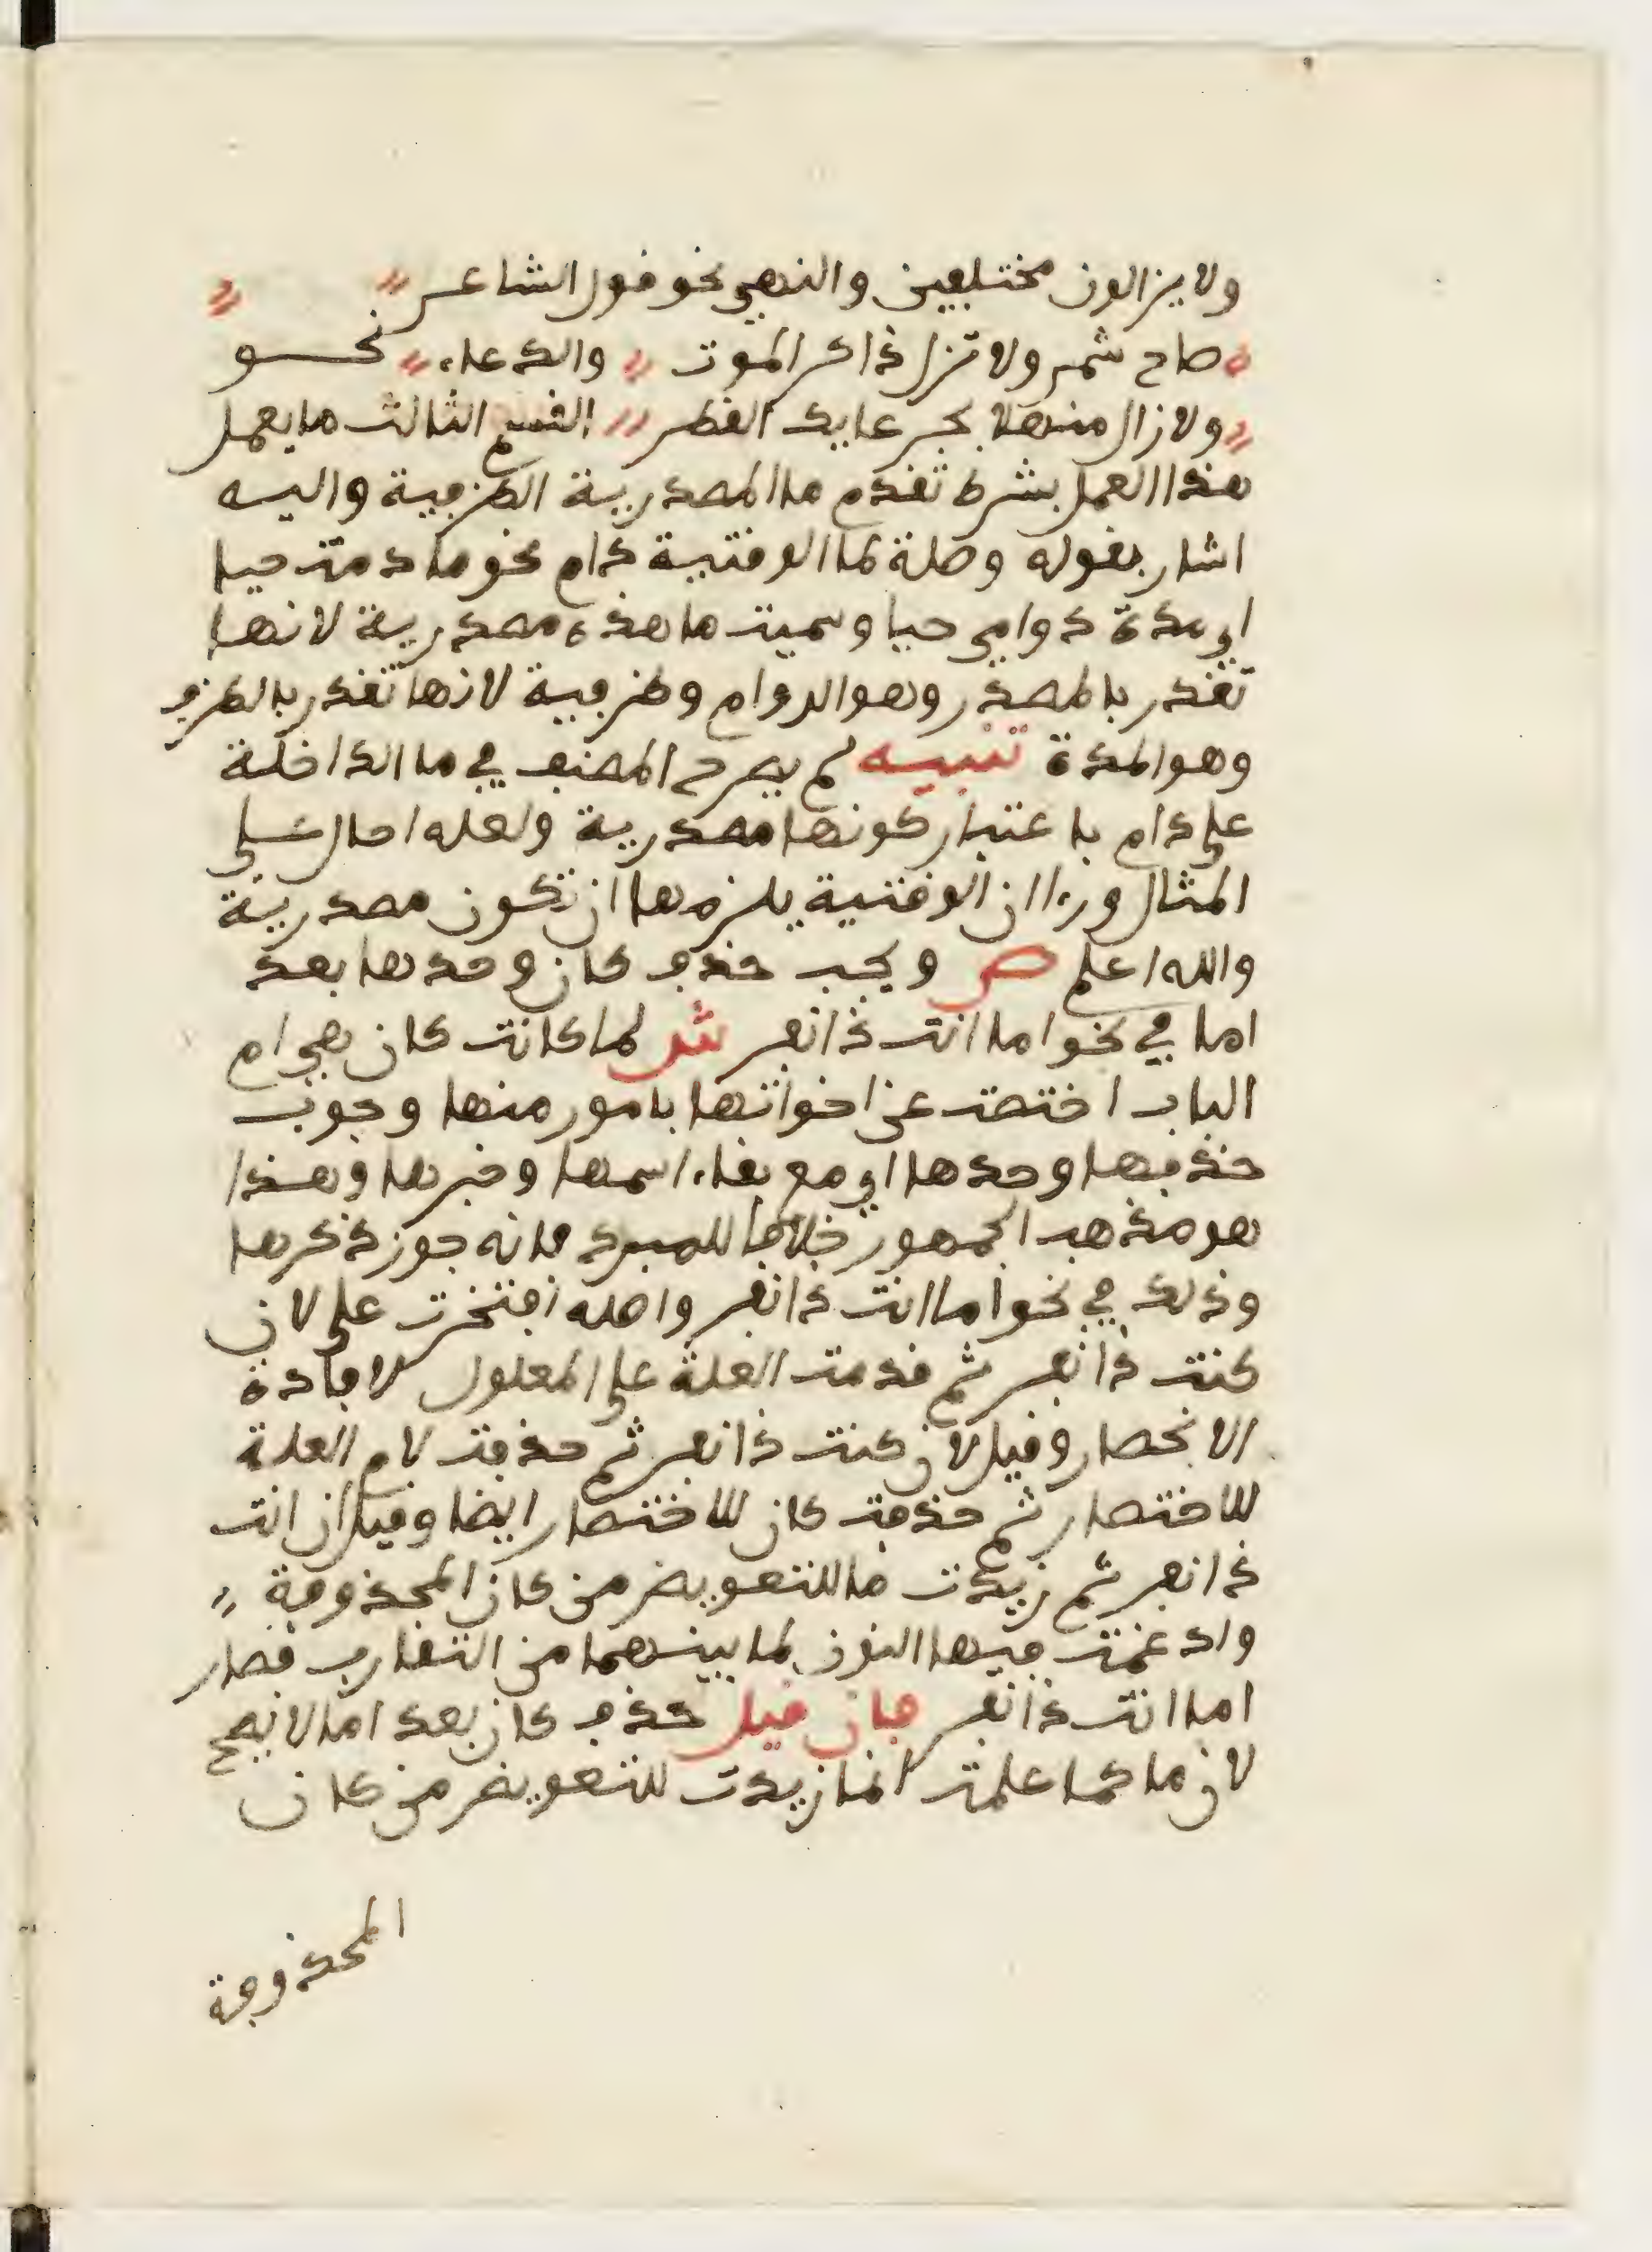 ولا يزالون مختلفين والنهي نحو قول الشاعر
صاح شمر ولا تزل ذاكر الموت والدعاء نحو
ولا زال منهلا بجرعايك القطر القسم الثالث ما يعمل
هذا العمل بشرط تقدم ما المصدرية الظرفية واليه
اشار بقوله وصلة لما الوقتية دام نحو ما دمت حيا
اي مدة دوامي حيا وسميت ما هذه مصدرية لانها
تقدر بالمصدر وهو الدوام وظرفية لانها تقدر بالظرف
وهو المدة تنبيه لم يصرح المصنف في ما الداخلة
على دام باعتبار كونها مصدرية ولعله احال على
المثال ورءا ان الوقتية يلزمها ان تكون مصدرية
والله اعلم ص ويجب حذف كان وحدها بعد
اما في نحو اما انت ذا نفر ش لما كانت كان هي ام
الباب اختصت عن اخواتها بامور منها وجوب
حذفها وحدها اي مع بقاء اسمها وخبرها وهذا
هو مذهب الجمهور خلافا للمبرد فانه جوز ذكرها
وذلك في نحو اما انت ذا نفر واصله افتخرت علي لان
كنت ذا نفر ثم قدمت العلة على المعلول لافادة
الانحصار وقيل لان كنت ذا نفر ثم حذفت لام العلة
للاختصار ثم حذفت كان للاختصار ايضا وقيل ان انت
ذا نفر ثم زيدت ما للتعويض من كان المحذوفة
وادغمت فيها النون لما بينهما من التقارب فصار
اما انت ذا نفر فان قيل حذف كان بعد اما لا يصح
لان ما كما علمت انما زيدت للتعويض من كان
المحذوفة